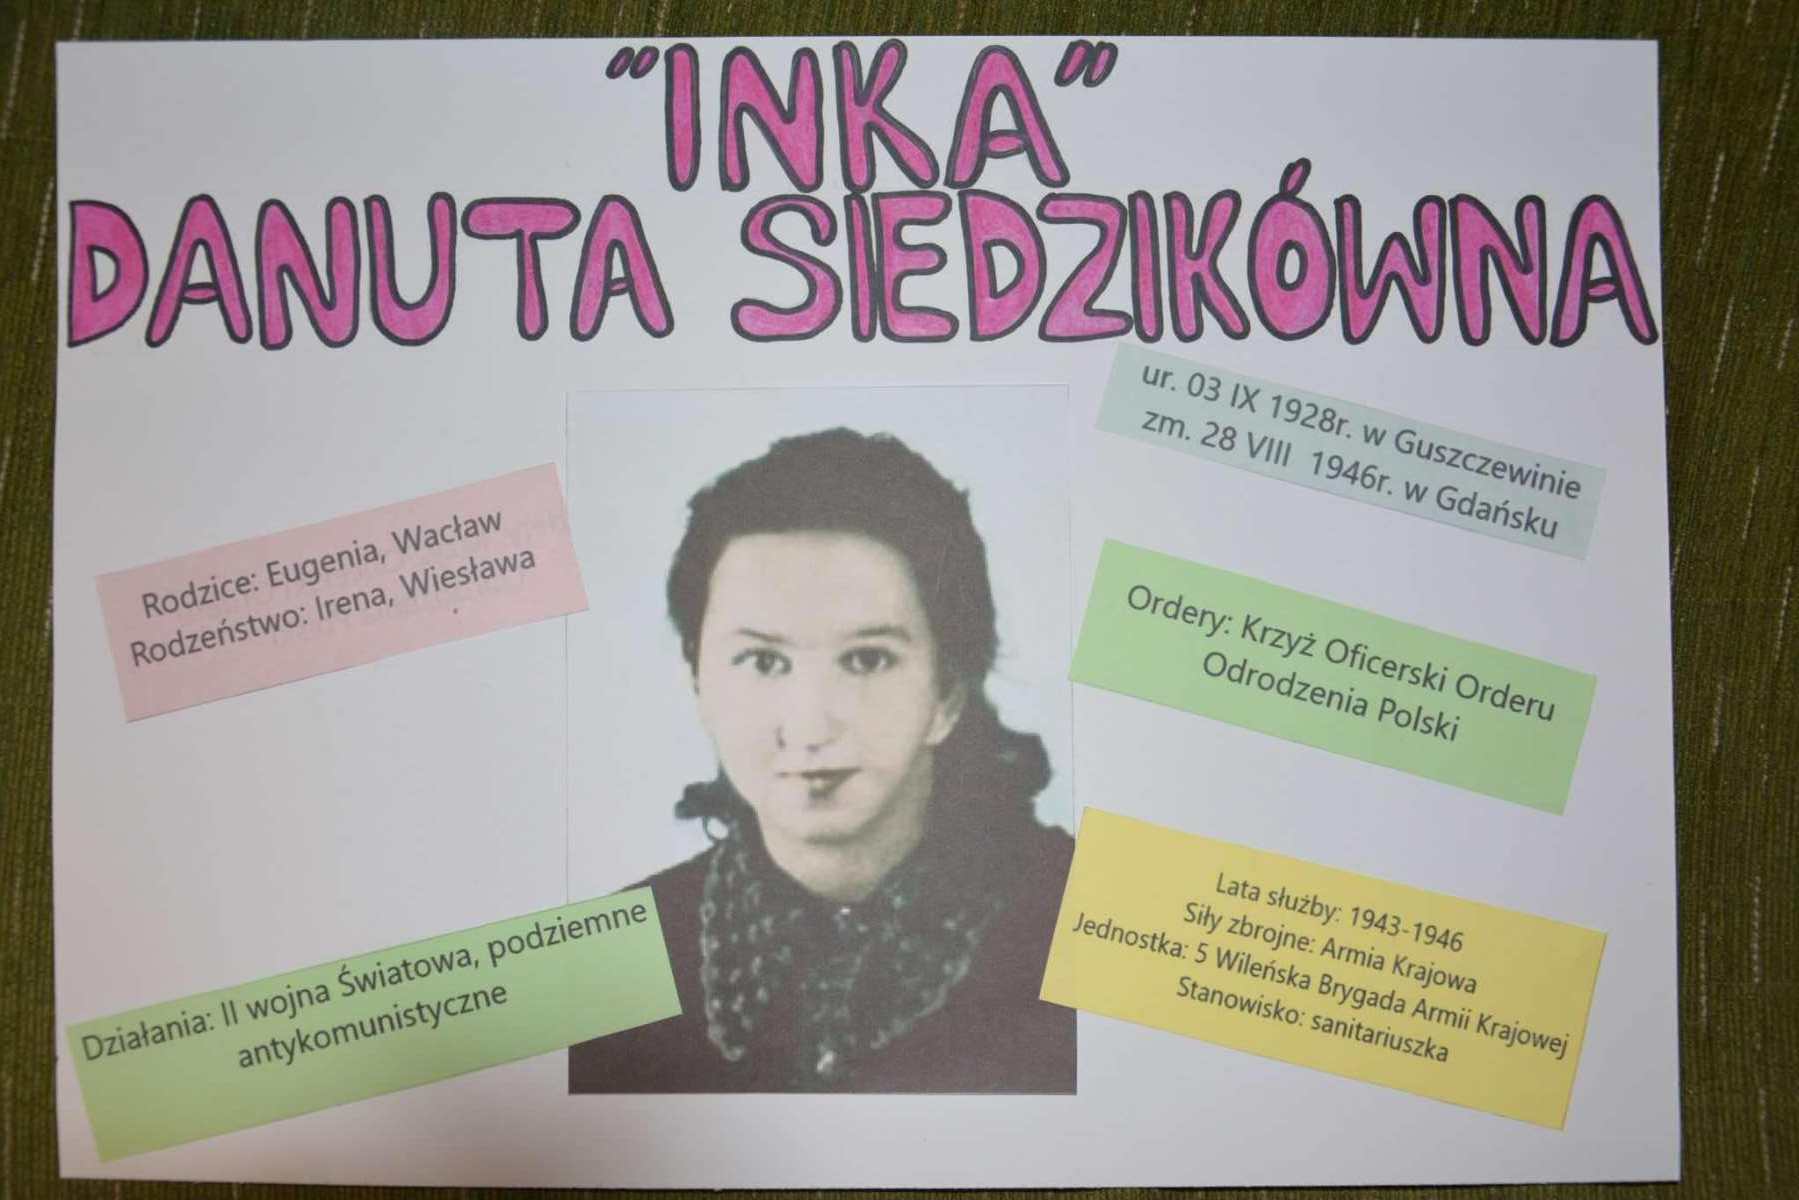 "INKA"
DANUTA SIEDZIKÓWNA
ur. 03 IX 1928r. w Guszczewinie
zm. 28 VIII 1946r. w Gdańsku
Rodzice: Eugenia, Wacław
Rodzeństwo: Irena, Wiesława
Ordery: Krzyż Oficerski Orderu
Odrodzenia Polski
Działania: II wojna Światowa, podziemne
antykomunistyczne
Lata służby: 1943-1946
Siły zbrojne: Armia Krajowa
Jednostka: 5 Wileńska Brygada Armii Krajowej
Stanowisko: sanitariuszka